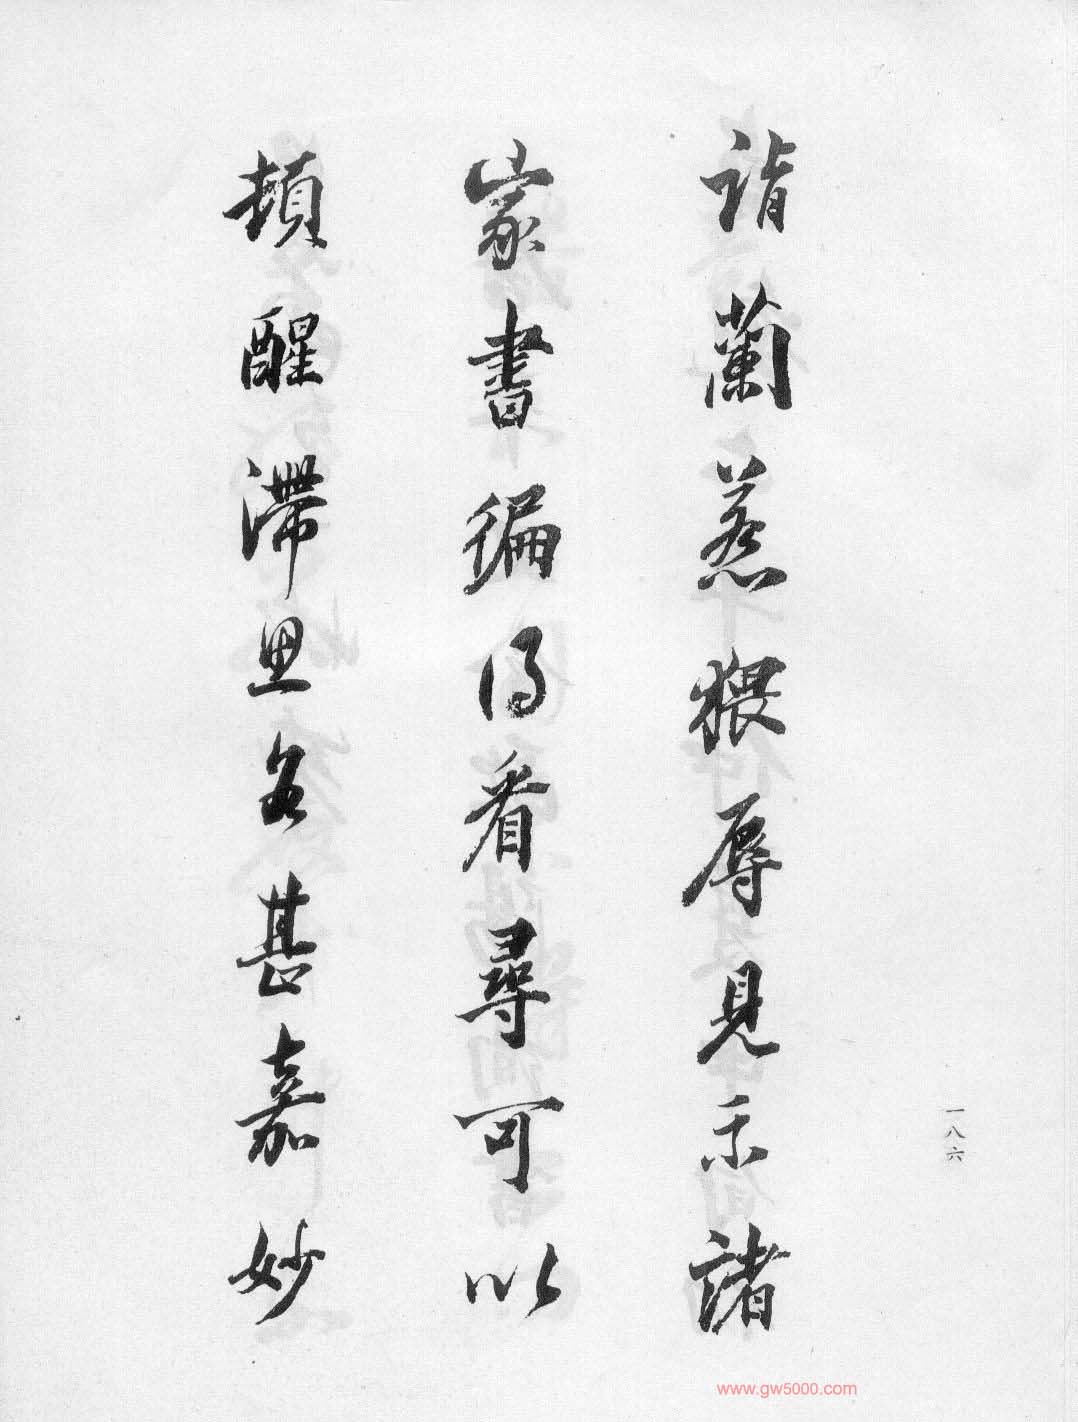 詣蘭惹猥辱見示諸
家書徧得看尋可以
頓醒滯思各甚嘉妙
一八六
www.gw5000.com